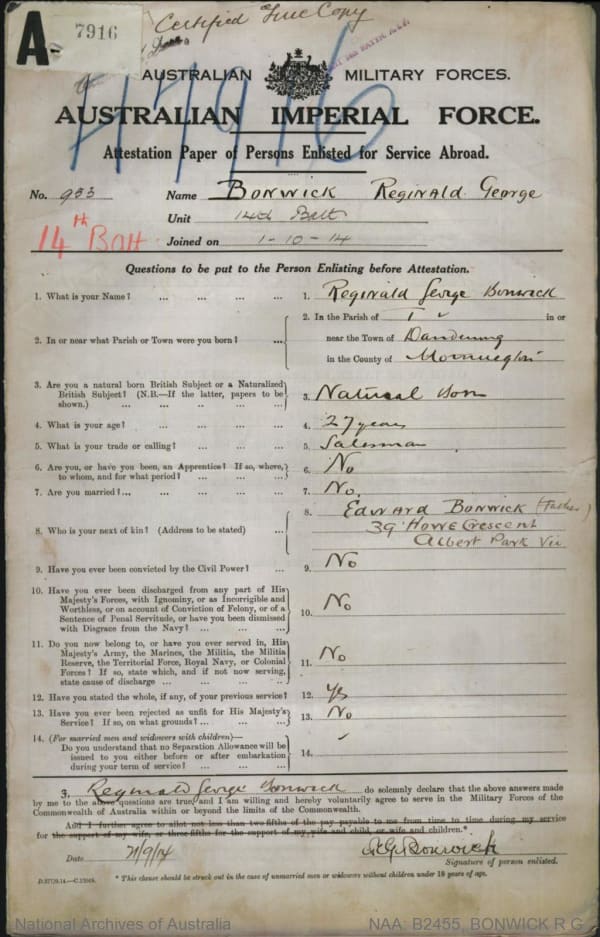 A-
7916
Certified True Copy
H7916
AUSTRALIAN MILITARY FORCES.
AUSTRALIAN IMPERIAL FORCE.
Attestation Paper of Persons Enlisted for Service Abroad.
No. 933 Name BONWICK Reginald George
Unit 14th Batt
14th Batt Joined on 1-10-14
Questions to be put to the Person Enlisting before Attestation.
1. What is your Name? ... ... ... ... 1. Reginald George Bonwick
2. In or near what Parish or Town were you born? ... 2. In the Parish of in or
near the Town of Dandenong
in the County of
3. Are you a natural born British Subject or a Naturalized
British Subject? (N.B.—If the latter, papers to be
shown.) ... ... ... ... ... 3. Natural Born
4. What is your age? ... ... ... ... 4. 27 years
5. What is your trade or calling? ... ... ... 5. Salesman
6. Are you, or have you been, an Apprentice? If so, where,
to whom, and for what period? ... ... ... 6. No
7. Are you married?... ... ... ... ... 7. No.
8. Who is your next of kin? (Address to be stated) ... 8. Edward Bonwick (Father)
39 Howe Crescent
Albert Park Vic
9. Have you ever been convicted by the Civil Power? ... 9. No
10. Have you ever been discharged from any part of His
Majesty's Forces, with Ignominy, or as Incorrigible and
Worthless, or on account of Conviction of Felony, or of a
Sentence of Penal Servitude, or have you been dismissed
with Disgrace from the Navy? ... ... ... 10. No
11. Do you now belong to, or have you ever served in, His
Majesty's Army, the Marines, the Militia, the Militia
Reserve, the Territorial Force, Royal Navy, or Colonial
Forces? If so, state which, and if not now serving,
state cause of discharge ... ... ... ... 11. No
12. Have you stated the whole, if any, of your previous service? 12. Yes
13. Have you ever been rejected as unfit for His Majesty's
Service? If so, on what grounds? ... ... ... 13. No
14. (For married men and widowers with children)—
Do you understand that no Separation Allowance will be
issued to you either before or after embarkation
during your term of service? ... ... ... 14.
I, Reginald George Bonwick do solemnly declare that the above answers made
by me to the above questions are true, and I am willing and hereby voluntarily agree to serve in the Military Forces of the
Commonwealth of Australia within or beyond the limits of the Commonwealth.
And I further agree to allot not less than two-fifths of the pay payable to me from time to time during my service
for the support of my wife, or three-fifths for the support of my wife and child, or wife and children.*
Date 21/9/14 R.G. Bonwick
Signature of person enlisted.
* This clause should be struck out in the case of unmarried men or widowers without children under 18 years of age.
National Archives of Australia NAA: B2455, BONWICK R G